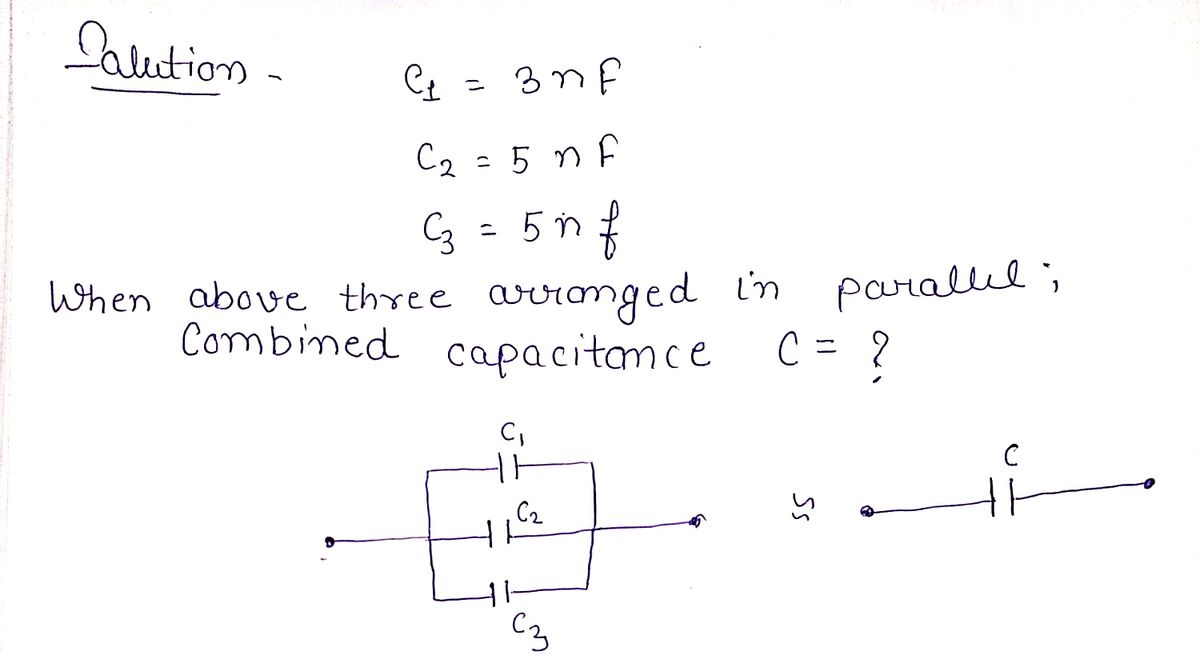 Solution -
C1 = 3 n F
C2 = 5 n F
C3 = 5 n f
When above three arranged in parallel ;
Combined capacitance C = ?
C1
C2
C3
≈
C